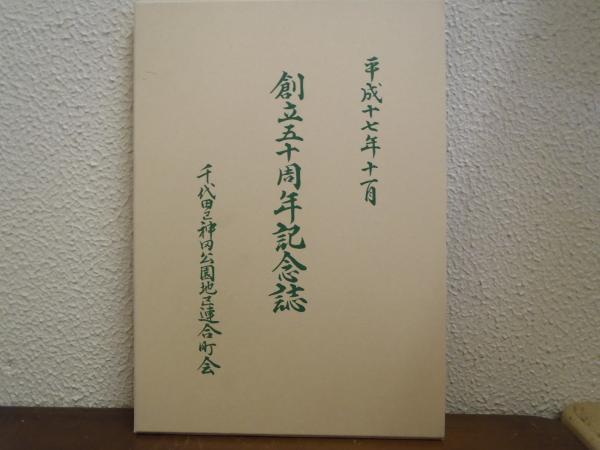 平成十七年十一月
創立五十周年記念誌
千代田区神田公園地区連合町会